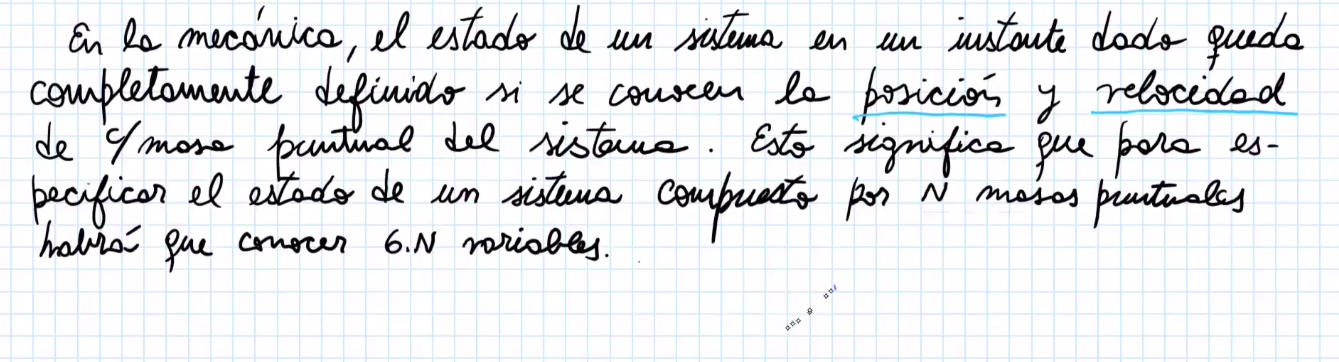 En la mecánica, el estado de un sistema en un instante dado queda
completamente definido si se conocen la posición y velocidad
de c/masa puntual del sistema. Esto significa que para es-
pecificar el estado de un sistema compuesto por N masas puntuales
habrá que conocer 6.N variables.